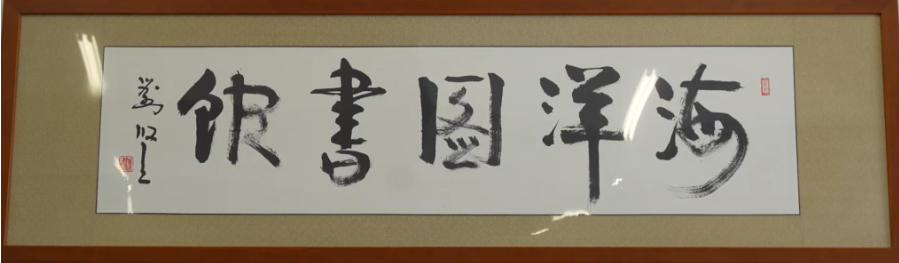 海洋图書館